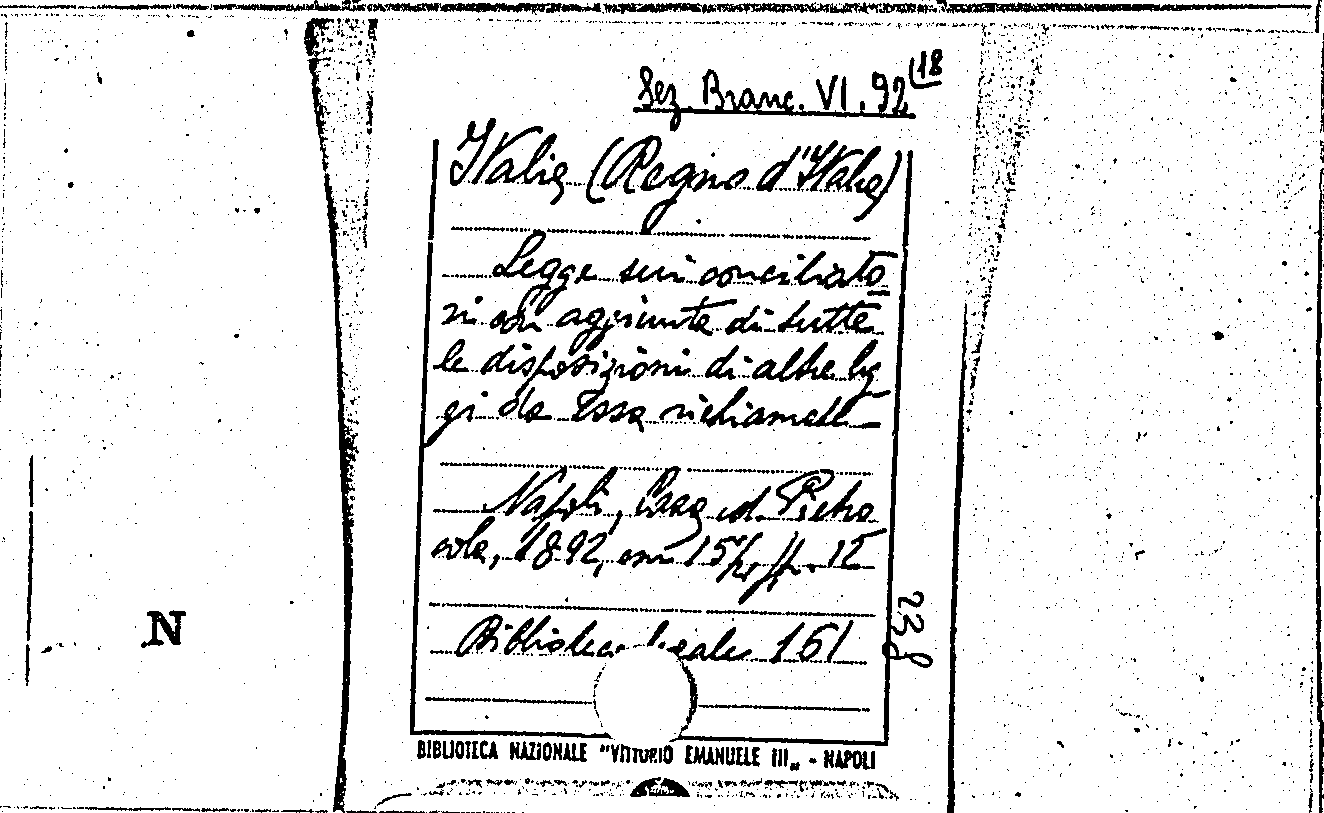 Sez. Branc. VI. 92 (18
Italia (Regno d'Italia)
Legge sui conciliato
ri con aggiunte di tutte
le disposizioni di altre leg
gi da essa richiamate
Napoli, Casa ed. Pietro
cola, 1892, cm 15 1/2, pp. 12
Biblioteca legale 161
238
N
BIBLIOTECA NAZIONALE "VITTORIO EMANUELE III„ - NAPOLI